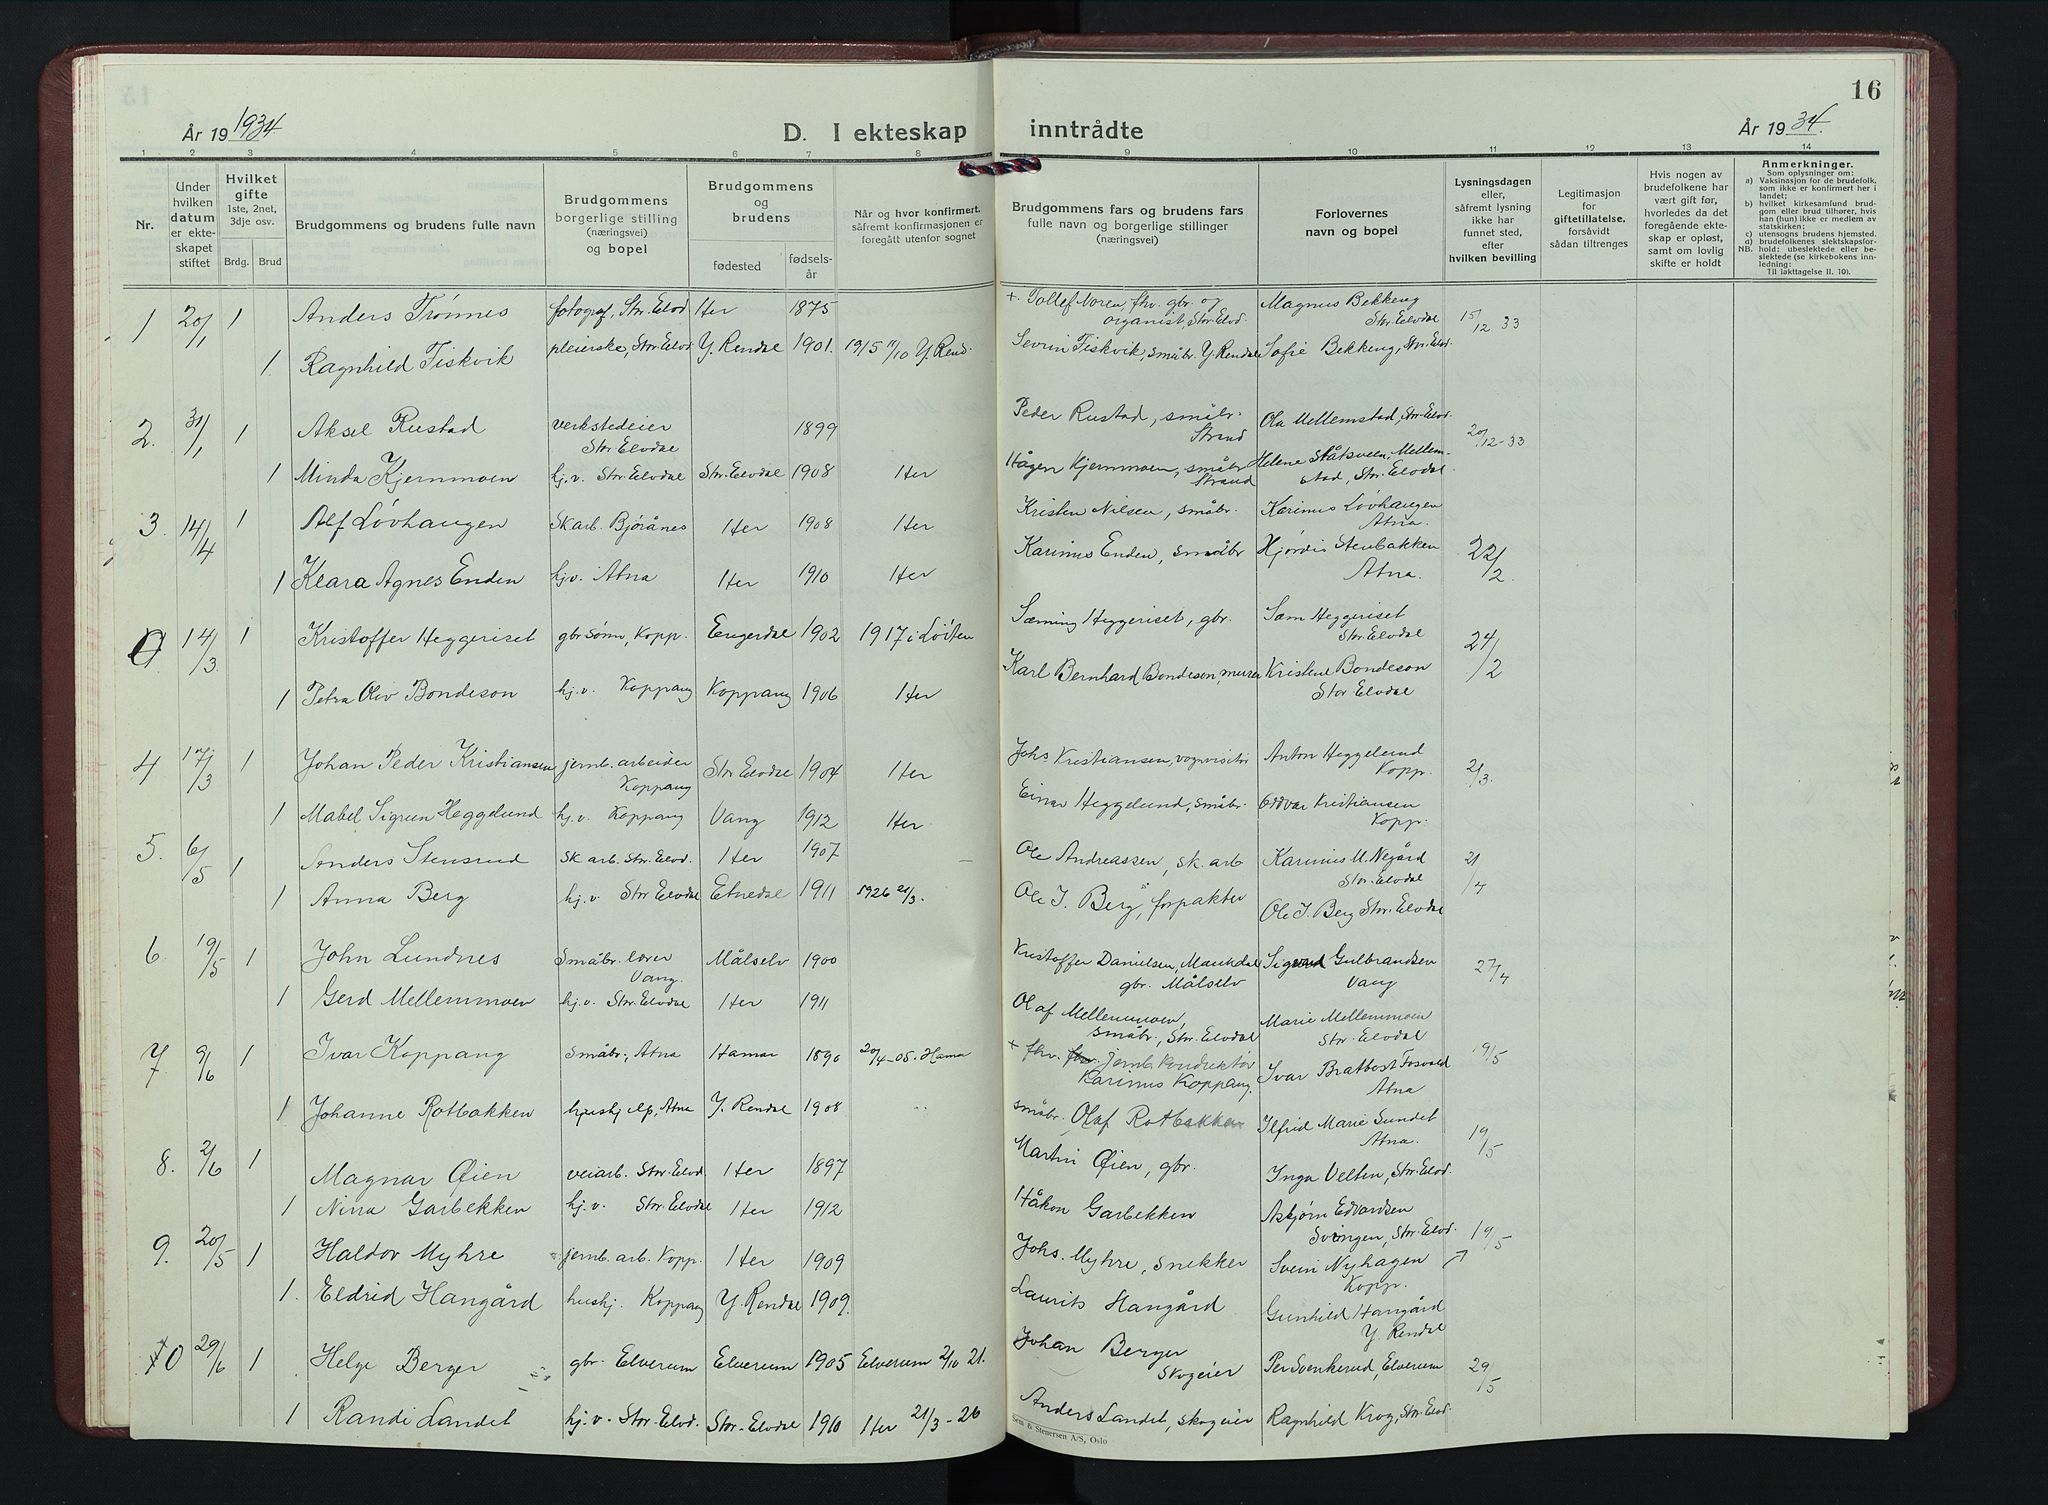 16
År 19 1934
D. I ekteskap inntrådte
År 19 34.
1 2 3 4 5 6 7 8 9 10 11 12 13 14
Nr.
Under hvilken datum er ekteskapet stiftet
Hvilket gifte 1ste, 2net, 3dje osv.
Brdg. Brud
Brudgommens og brudens fulle navn
Brudgommens borgerlige stilling (næringsvei) og bopel
Brudgommens og brudens
fødested
fødselsår
Når og hvor konfirmert, såfremt konfirmasjonen er foregått utenfor sognet
Brudgommens fars og brudens fars fulle navn og borgerlige stillinger (næringsvei)
Forlovernes navn og bopel
Lysningsdagen eller, såfremt lysning ikke har funnet sted, efter hvilken bevilling
Legitimasjon for giftetillatelse, forsåvidt sådan tiltrenges
Hvis nogen av brudefolkene har vært gift før, hvorledes da det foregående ekteskap er opløst, samt om lovlig skifte er holdt
Anmerkninger.
Som oplysninger om:
a) Vaksinasjon for de brudefolk, som ikke er konfirmert her i landet;
b) hvilket kirkesamfund brudgom eller brud tilhører, hvis han (hun) ikke er medlem av statskirken;
c) utensogns brudens hjemsted.
d) brudefolkenes slektskapsforhold: ubeslektede eller beslektede (se kirkebokens innledning:
NB. Til iakttagelse II. 10).
1 20/1 1 Anders Trønnes fotograf, Stor.Elvd. Her 1875 + Tollef Noren, fhv. gbr. og organist, Stor.Elvd. Magnus Bekkeng Stor.Elvdal 15/12 33
1. Ragnhild Fiskvik pleierske, Stor.Elvd. Y. Rendal 1901. 1915 11/10 Y. Rend. Sevrin Fiskvik, småbr. Y. Rendal Sofie Bekkeng, Stor.Elvd.
2. 31/1 1 Aksel Rustad verkstedeier Stor.Elvdal 1899 Peder Rustad, småbr. Strand Ola Mellemstad, Stor.Elvd. 20/12-33
1 Minda Kjernmoen hj.v. Stor.Elvdal Stor.Elvdal 1908 Her Hågen Kjernmoen, småbr. Strand Helene Ståksveen, Mellemstad, Stor.Elvdal
3. 14/4 1 Alf Løvhaugen Skarb. Bjørånes Her 1908 Her Kristen Nilsen, småbr. Karinus Løvhaugen Atna.
1 Klara Agnes Enden hj.v. Atna Her 1910 Her Karinus Enden, småbr Hjørdis Stenbakken Atna. 22/2.
14/3. 1 Kristoffer Heggeriset gbr sønn, Kopp. Engerdal 1902 1917 i Løiten Sæming Heggeriset, gbr. Sam Heggeriset Stor.Elvdal 24/2
1 Petra Oliv Bondeson hj.v. Koppang Koppang 1906 Her Karl Bernhard Bondeson, murer Kristene Bondeson Stor Elvdal
4 17/3 1 Johan Peder Kristiansen jernb. arbeider Koppang Stor Elvdal 1904 Her Johs Kristiansen, vognvisitør Anton Heggelund Kopp. 2/3.
1 Mabel Sigrun Heggelund hj.v. Koppang Vang 1912 Her Einar Heggelund, småbr. Oddvar Kristiansen Kopp.
5. 6/5 1 Anders Stensrud sk arb. Stor.Elvd. Her 1907 Ole Andreassen, sk. arb Karinus M. Negård Stor.Elvdal 21/4
1 Anna Berg hj.v. Stor Elvdal Etnedal 1911 1926 21/3. Ole J. Berg, forpakter Ole J. Berg Stor.Elvdal
6. 19/5 1 John Lundnes Småbr. lærer Vang. Målselv 1900 Kristoffer Danielsen, Maukdal gbr. Målselv Sigurd Gulbrandsen Vang 27/4
1 Gerd Mellemmoen hj.v. Stor.Elvdal Her 1911 Olaf Mellemmoen, småbr., Stor.Elvdal Marie Mellemmoen Stor.Elvdal
7. 9/6 1 Ivar Koppang småbr., Atna Hamar 1890 20/4-05. Hama + fhv. jernb. konduktør Karinus Koppang. Ivar Bratbost Fosvold Atna 19/5
1 Johanne Rotbakken hushj elp, Atna Y. Rendal 1908 småbr. Olaf Rotbakken Ilfrid Marie Sundet Atna.
8. 2/6 1 Magnar Øien veiarb. Stor.Elvd. Her 1897 Martin Øien, gbr. Inga Velten, Stor.Elvd. 19/5
1 Nina Garbekken hj.v. Stor.Elvdal Her 1912 Håkon Garbekken Asbjørn Edvardsen Svingen, Stor.Elvd.
9. 20/5 1 Haldor Myhre jernb. arb. Kopp. Her 1909 Johs. Myhre, snekker Svein Nyhagen Kopp. 19/5
1. Eldrid Hangård hushj. Koppang Y. Rendal 1909. Laurits Hangård Gunhild Hangård Y. Rendal
10 29/6 1 Helge Berger gbr. Elverum Elverum 1905 Elverum 2/10 21. Johan Berger Skogeier Per Svenkerud, Elverum 29/5
1 Randi Landet hj.v. Stor.Elvd. Stor-Elvdal 1910 Her 21/3-26 Anders Landet, skogeier Ragnhild Krog, Stor.Elvd.
Sem & Stenersen A/S, Oslo